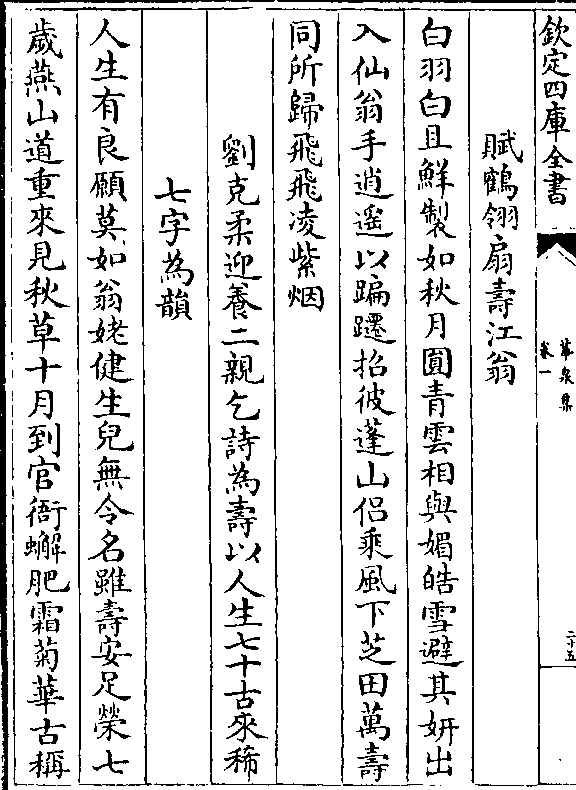 欽定四庫全書
華泉集
卷一
二十五
賦鶴翎扇壽江翁
白羽白且鮮製如秋月圓青雲相與媚皓雪避其妍出
入仙翁手逍遥以蹁躚招彼蓬山侣乘風下芝田萬壽
同所歸飛飛凌紫烟
劉克柔迎養二親乞詩為壽以人生七十古來稀
七字為韻
人生有良願莫如翁姥健生兒無令名雖壽安足榮七
歲燕山道重來見秋草十月到官衙蠏肥霜菊華古稱